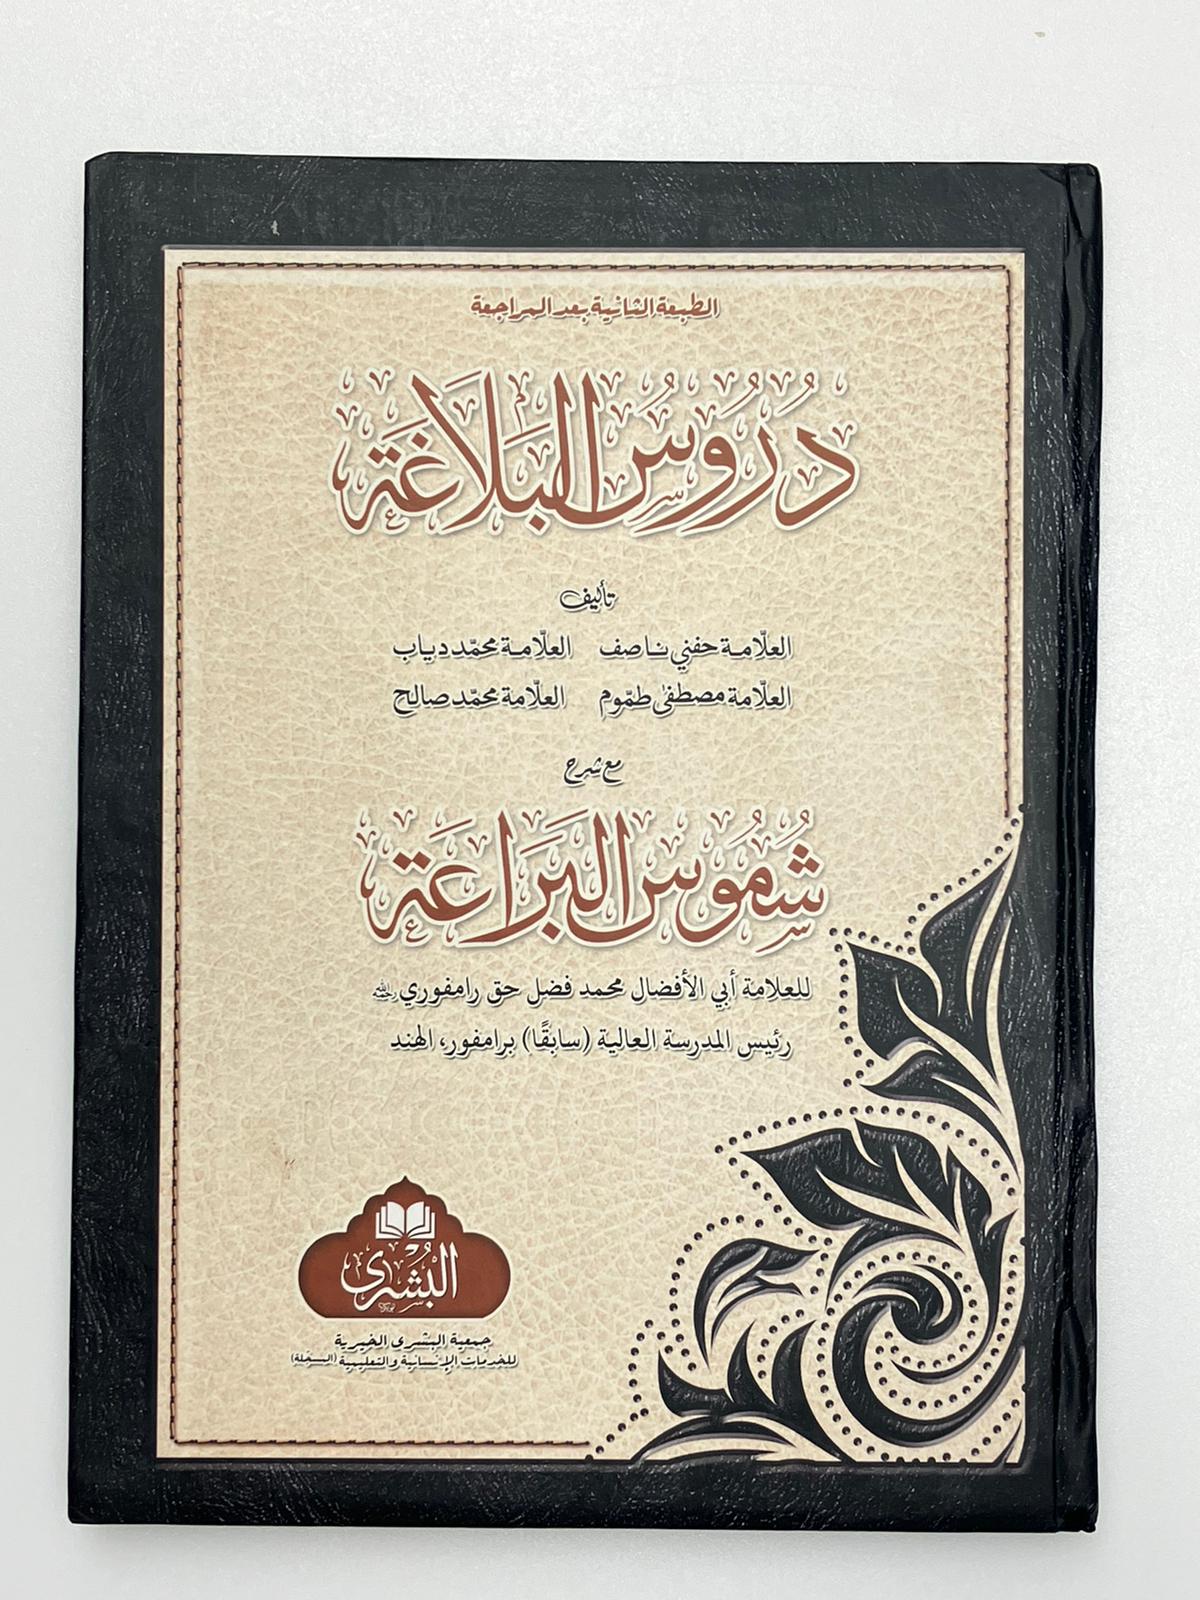 الطبعة الثانية بعد المراجعة
دُرُوسُ البَلَاغَة
تأليف
العلّامة حفني ناصف العلّامة محمّد دياب
العلّامة مصطفى طمّوم العلّامة محمّد صالح
مع شرح
شُمُوسُ البَرَاعَة
للعلامة أبي الأفضال محمد فضل حق رامفوري رحمه الله
رئيس المدرسة العالية (سابقًا) برامفور، الهند
البُشرى
جمعية البشرى الخيرية
للخدمات الإنسانية والتعليمية (المسجّلة)